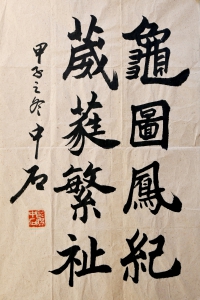 龜圖鳳紀
葳蕤繁祉
甲子之冬中石